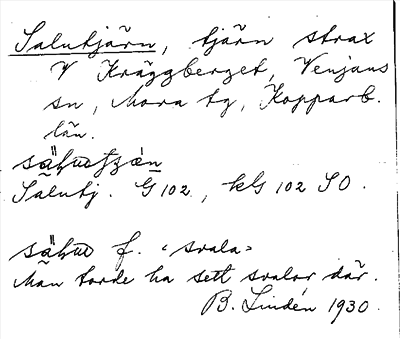 Salutjärn, tjärn strax
V Kräggberget, Venjans
sn, Mora tg, Kopparb.
län.
Salutj. G 102, kG 102 SO.
f. "svala"
Man torde ha sett svalor där.
B. Lindén 1930.